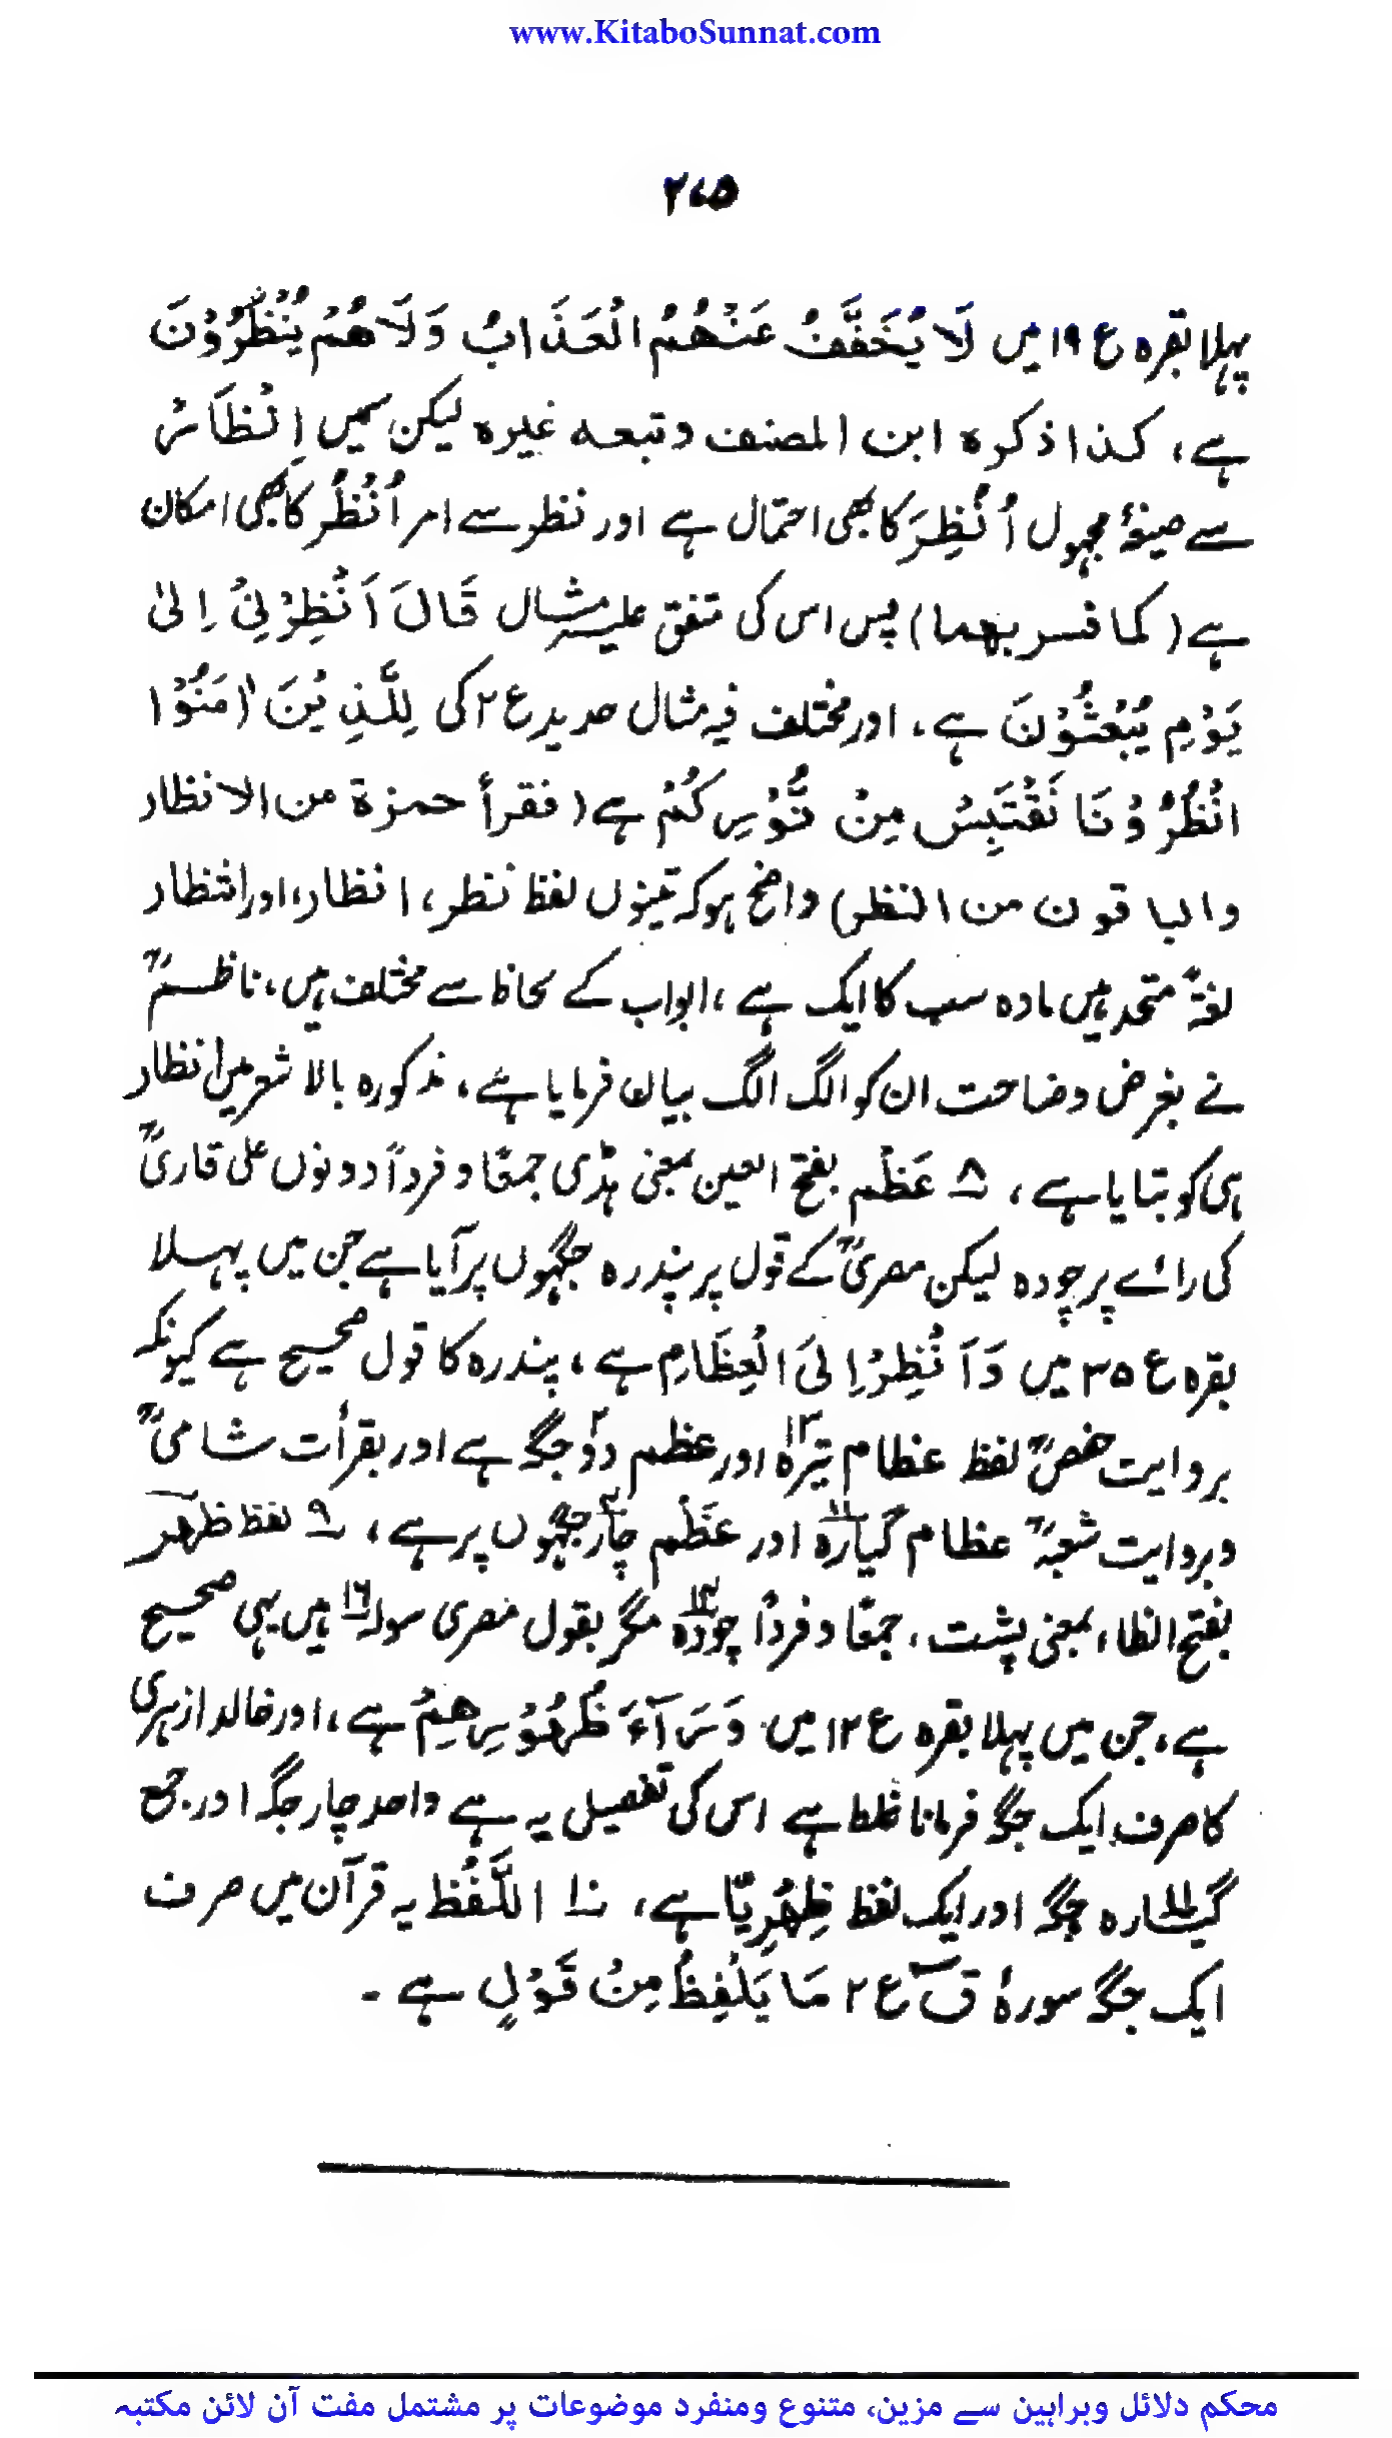 www.KitaboSunnat.com
۲۷۵
پہلا بقرہ ع ۱۹ میں لَا يُخَفَّفُ عَنْهُمُ الْعَذَابُ وَلَا هُمْ يُنْظَرُوْنَ
ہے، کذا ذکرہ ابن المصنف وتبعہ غیرہ لیکن اسمیں اِنْظَارٌ
سے صیغۂ مجہول اُنْظِرَ کا بھی احتمال ہے اور نظر سے امر اُنْظُرْ کا بھی امکان
ہے (کما فسر بھما) پس اس کی متفق علیہ مثال قَالَ اَنْظِرْنِیْ اِلیٰ
یَوْمِ یُبْعَثُوْنَ ہے، اور مختلف فیہ مثال حدید ع ۲ کی لِلَّذِیْنَ اٰمَنُوْا
انْظُرُوْنَا نَقْتَبِسْ مِنْ نُّوْرِكُمْ ہے (فقرأ حمزة من الانظار
والباقون من النظر) واضح ہو کہ تینوں لفظ نظر، انظار، اور انتظار
لغۃً متحد ہیں مادہ سب کا ایک ہے، ابواب کے لحاظ سے مختلف ہیں، ناظمؒ
نے بغرض وضاحت ان کو الگ الگ بیان فرمایا ہے، مذکورہ بالا شعر میں انظار
ہی کو بتایا ہے، ۸ عَظْم بفتح العین بمعنی ہڈی جمعًا و فرداً دونوں علی قاریؒ
کی رائے پر چودہ لیکن مصریؒ کے قول پر پندرہ جگہوں پر آیا ہے جن میں پہلا
بقرہ ع ۳۵ میں وَانْظُرْ اِلَی الْعِظَامِ ہے، پندرہ کا قول صحیح ہے کیونکہ
بروایت حفصؒ لفظ عظام تیرہ ۱۳ اور عظم دو ۲ جگہ ہے اور بقرأت شامیؒ
وبروایت شعبہؒ عظام گیارہ ۱۱ اور عَظْم چار ۴ جگہوں پر ہے، ۹ لفظ ظَهْر
بفتح الظاء بمعنی پشت، جمعًا و فردًا چودہ ۱۴ مگر بقول مصری سولہ ۱۶ ہیں یہی صحیح
ہے، جن میں پہلا بقرہ ع ۱۲ میں وَرَآءَ ظُهُوْرِهِمْ ہے، اور خالد ازہری
کا صرف ایک جگہ فرمانا غلط ہے اس کی تفصیل یہ ہے واحد چار جگہ اور جمع
گیارہ ۱۱ جگہ اور ایک لفظ ظِهْرِيًّا ہے، ۱۰ اللَّفْظ یہ قرآن میں صرف
ایک جگہ سورۂ قٓ ع ۲ مَا یَلْفِظُ مِنْ قَوْلٍ ہے ۔
محکم دلائل وبراہین سے مزین، متنوع ومنفرد موضوعات پر مشتمل مفت آن لائن مکتبہ